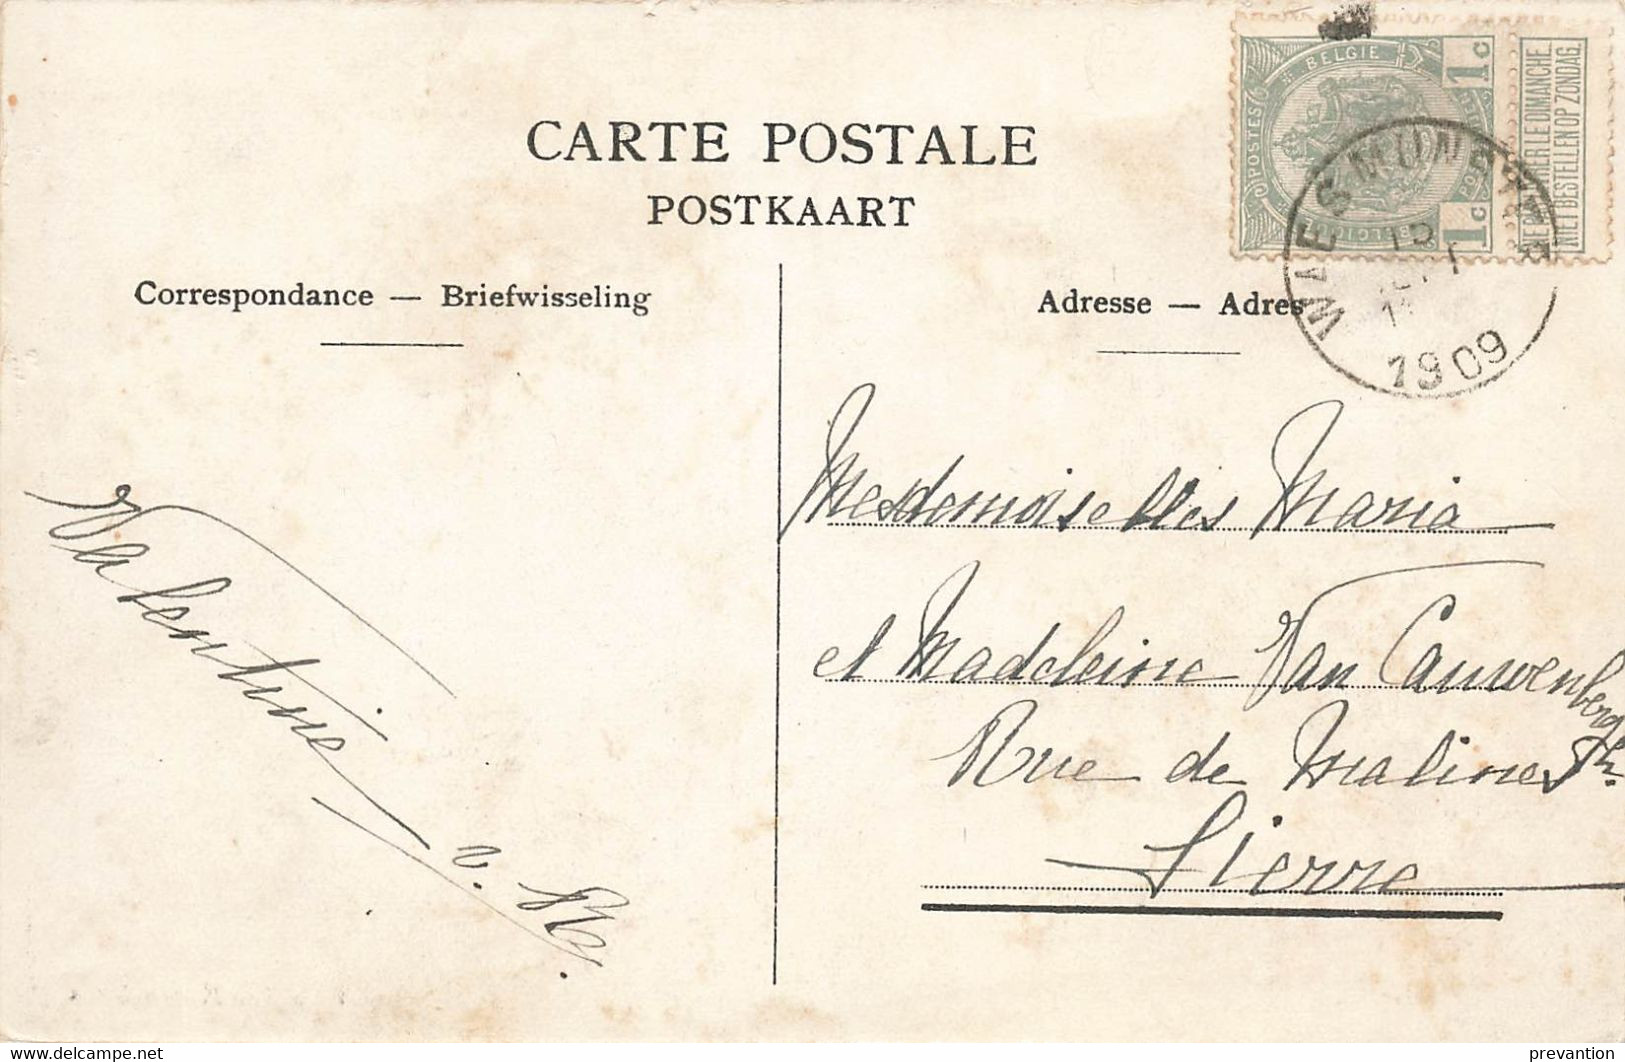 CARTE POSTALE
POSTKAART
Correspondance — Briefwisseling
Adresse — Adres
1c BELGIE 1c
POSTES
BELGIQUE
NE PAS LIVRER LE DIMANCHE.
NIET BESTELLEN OP ZONDAG.
WAESMUNSTER
15
1909
Mesdemoiselles Maria
et Madeleine Van Cauwenbergh
Rue de Malines
Lierre
Valentine
v.
delcampe.net
prevantion